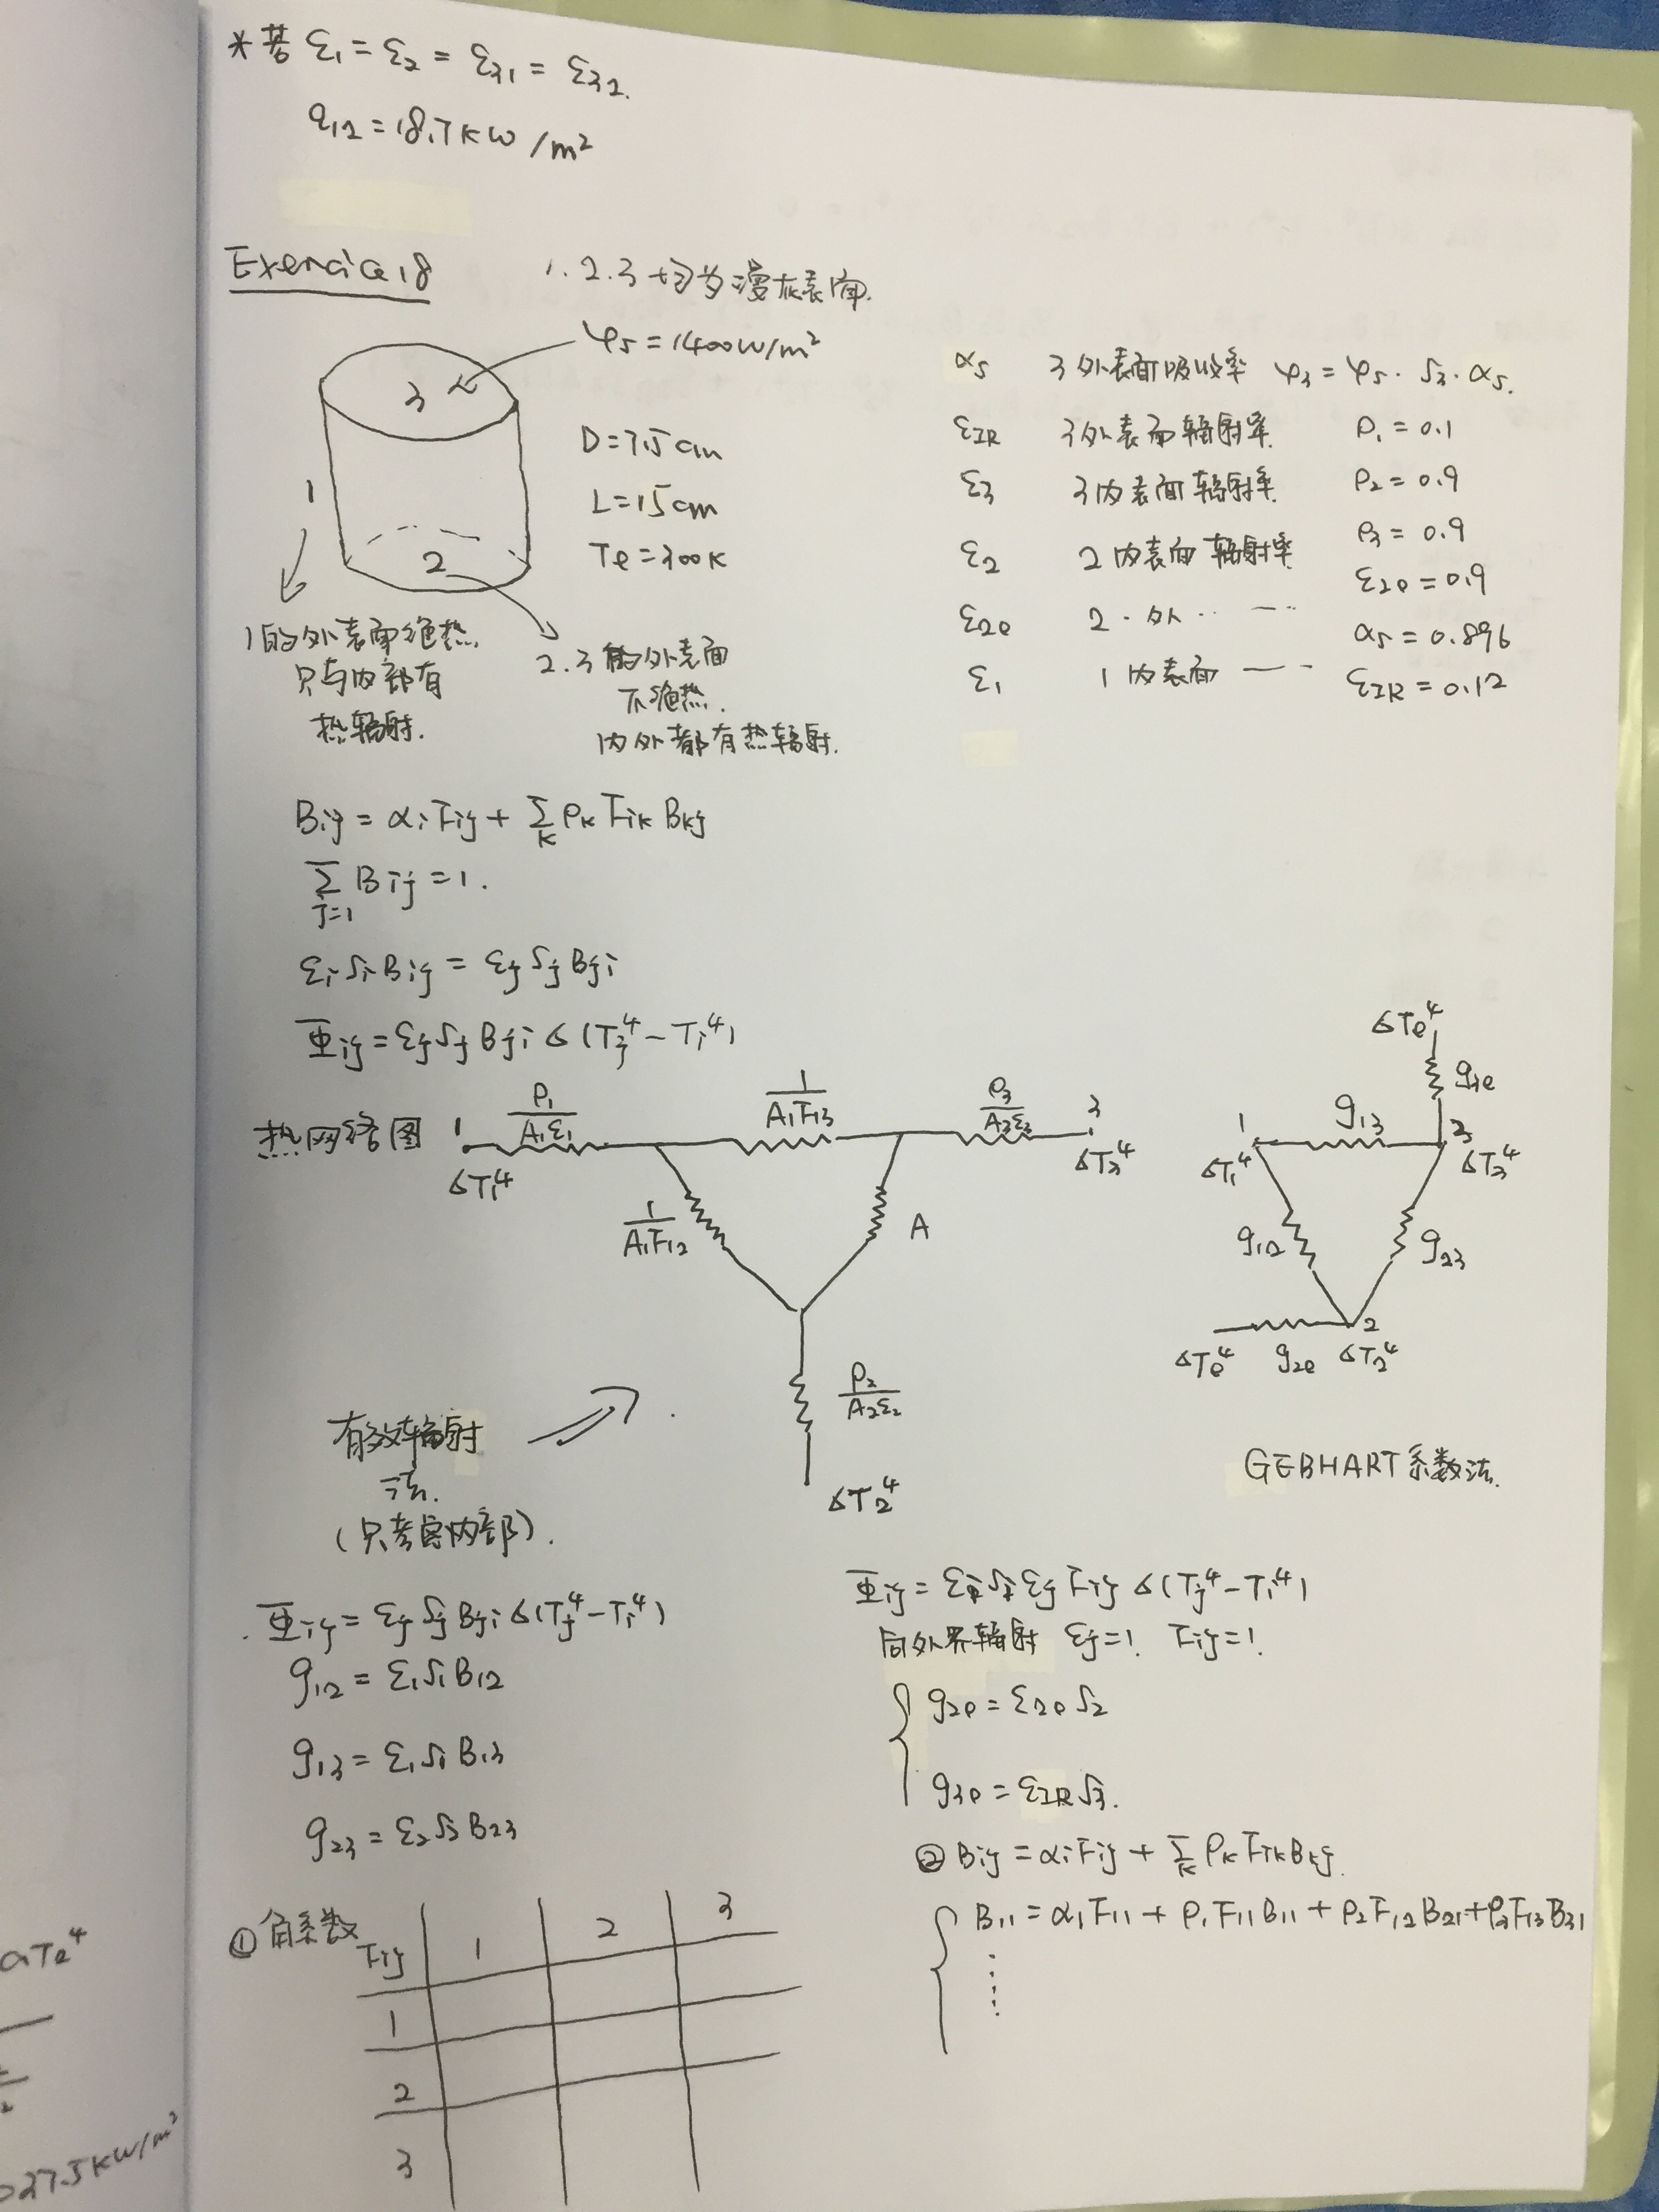 *若 ε₁ = ε₂ = ε₃₁ = ε₃₂.
q₁₂ = 18.7 kW/m²
Exercice 18
1.2.3 均为漫灰表面.
φs = 1400W/m²
3
1
2
D = 7.5 cm
L = 15 cm
Te = 300K
1的外表面绝热.
只与内部有
热辐射.
2.3 的外表面
不绝热.
内外都有热辐射.
αs 3外表面吸收率 φ₃ = φs · S₃ · αs.
εIR 3外表面辐射率 ρ₁ = 0.1
ε₃ 3内表面辐射率 ρ₂ = 0.9
ε₂ 2内表面辐射率 ρ₃ = 0.9
ε₂e = 0.9
ε₂e 2 · 外 ·· —·
αs = 0.896
ε₁ 1内表面 —··
εIR = 0.12
Bij = αi Fij + Σk ρk Fik Bkj
Σj=1 Bij = 1.
εi Si Bij = εj Sj Bji
Φij = εj Sj Bji σ (Tj⁴ − Ti⁴)
热网络图
1 ρ₁/A₁ε₁ 1/A₁F₁₃ ρ₃/A₃ε₃ 3
σT₁⁴ σT₃⁴
1/A₁F₁₂ A
ρ₂/A₂ε₂
σT₂⁴
有效辐射
法.
(只考虑内部).
σTe⁴
g₃e
1 g₁₃ 3
σT₁⁴ σT₃⁴
g₁₂ g₂₃
2
σTe⁴ g₂e σT₂⁴
GEBHART系数法.
Φij = εj Sj Bji σ(Tj⁴ − Ti⁴)
g₁₂ = ε₁S₁B₁₂
g₁₃ = ε₁S₁B₁₃
g₂₃ = ε₂S₂B₂₃
Φij = εi Si εj Fij σ(Tj⁴ − Ti⁴)
向外界辐射 εj = 1. Fij = 1.
g₂e = ε₂e S₂
g₃e = εIR S₃.
② Bij = αi Fij + Σk ρk Fik Bkj.
B₁₁ = α₁F₁₁ + ρ₁F₁₁B₁₁ + ρ₂F₁₂B₂₁ + ρ₃F₁₃B₃₁
① 角系数
Fij 1 2 3
1
2
3
aT₂⁴
27.5 kW/m²